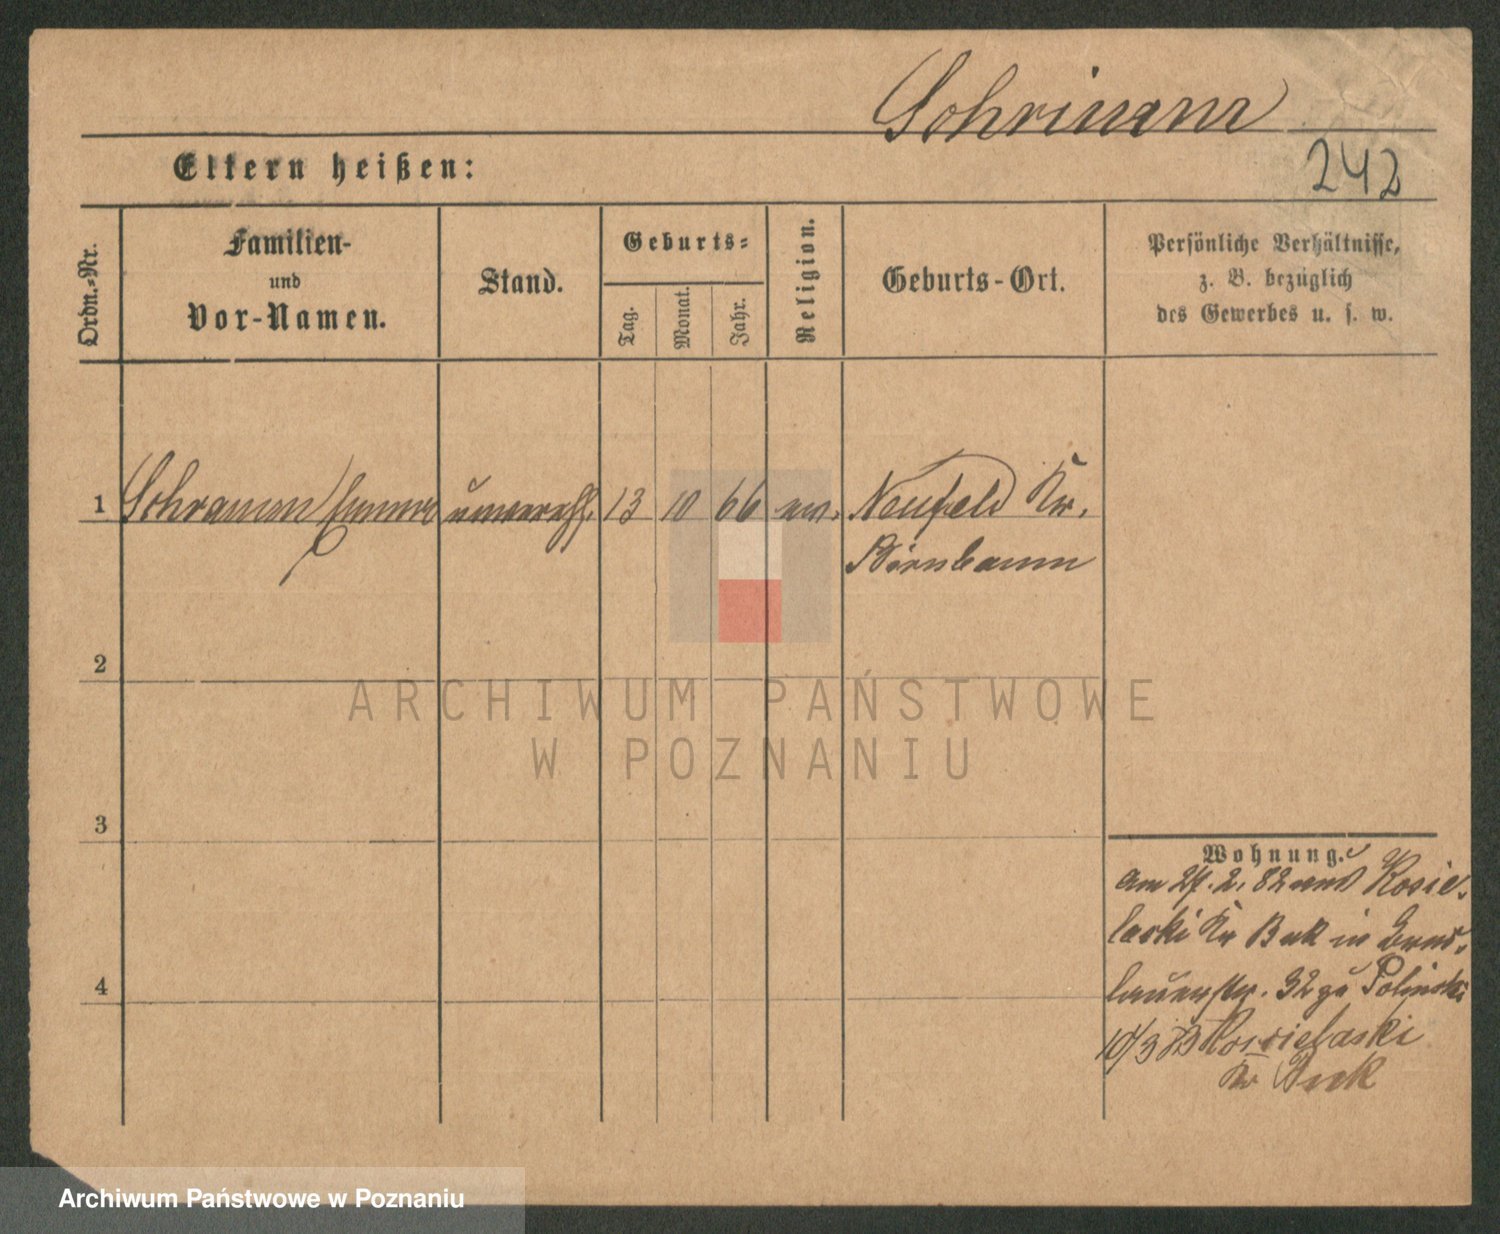 Schramm
Eltern heißen:
242
Ordn.-Nr.
Familien-
und
Vor-Namen.
Stand.
Geburts-
Tag.
Monat.
Jahr.
Religion.
Geburts-Ort.
Persönliche Verhältnisse,
z. B. bezüglich
des Gewerbes u. s. w.
1 Schramm Emma unvereh. 13 10 66 ev. Neufeld Kr.
Birnbaum
2
ARCHIWUM PAŃSTWOWE
W POZNANIU
3
Wohnung.
am 27. 2. 82 aus Kosie-
laski Kr Buk in
32 zu Polinski
10/3 83 Kosielaski
Kr Buk
4
Archiwum Państwowe w Poznaniu